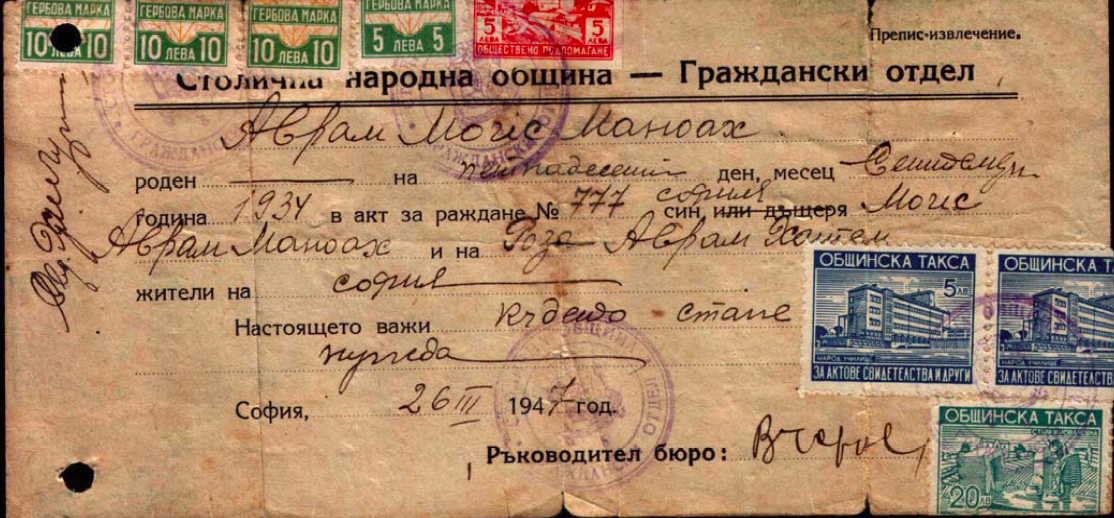 ГЕРБОВА МАРКА ГЕРБОВА МАРКА ГЕРБОВА МАРКА
10 10 10 ЛЕВА 10 10 ЛЕВА 10 5 ЛЕВА 5 5 ЛЕВА 5 ЛЕВА
ОБЩЕСТВЕНО ПОДПОМАГАНЕ
Препис-извлечение.
Столична народна община — Граждански отдел
Аврам Моис Маноах
роден на петнадесети ден, месец Септември
година 1934 в акт за раждане № 777 софия син или дъщеря Моис
Аврам Маноах и на Роза Аврам
жители на софия
Настоящето важи където стане
нужда
София, 26 III 1947 год.
Ръководител бюро:
ОБЩИНСКА ТАКСА ОБЩИНСКА ТА
5 ЛВ
НАРОД. УЧИЛИЩЕ НАРОД. УЧИЛИЩЕ
ЗА АКТОВЕ СВИДЕТЕЛСТВА И ДРУГИ ЗА АКТОВЕ СВИДЕТЕЛСТ
ОБЩИНСКА ТАКСА
20 ЛВ